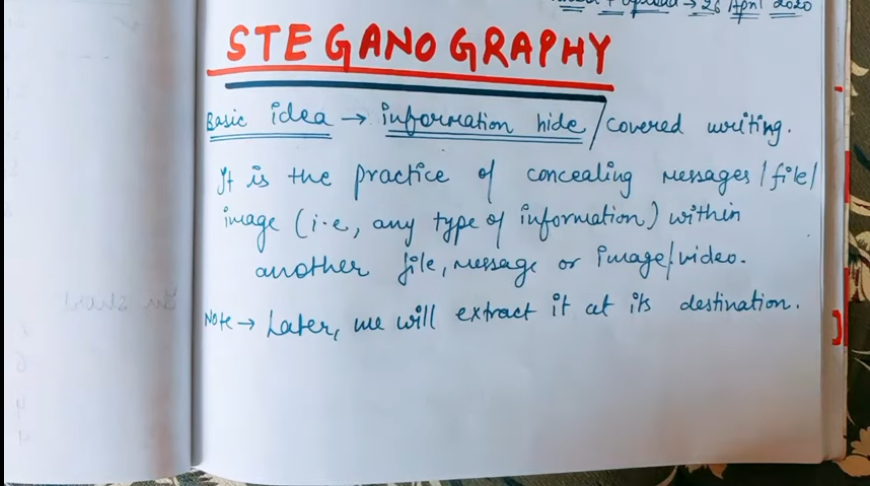 → 26 April 2020
STEGANOGRAPHY
Basic idea → information hide/covered writing.
It is the practice of concealing messages/file/
image (i.e, any type of information) within
another file, message or image/video.
Note → Later, we will extract it at its destination.